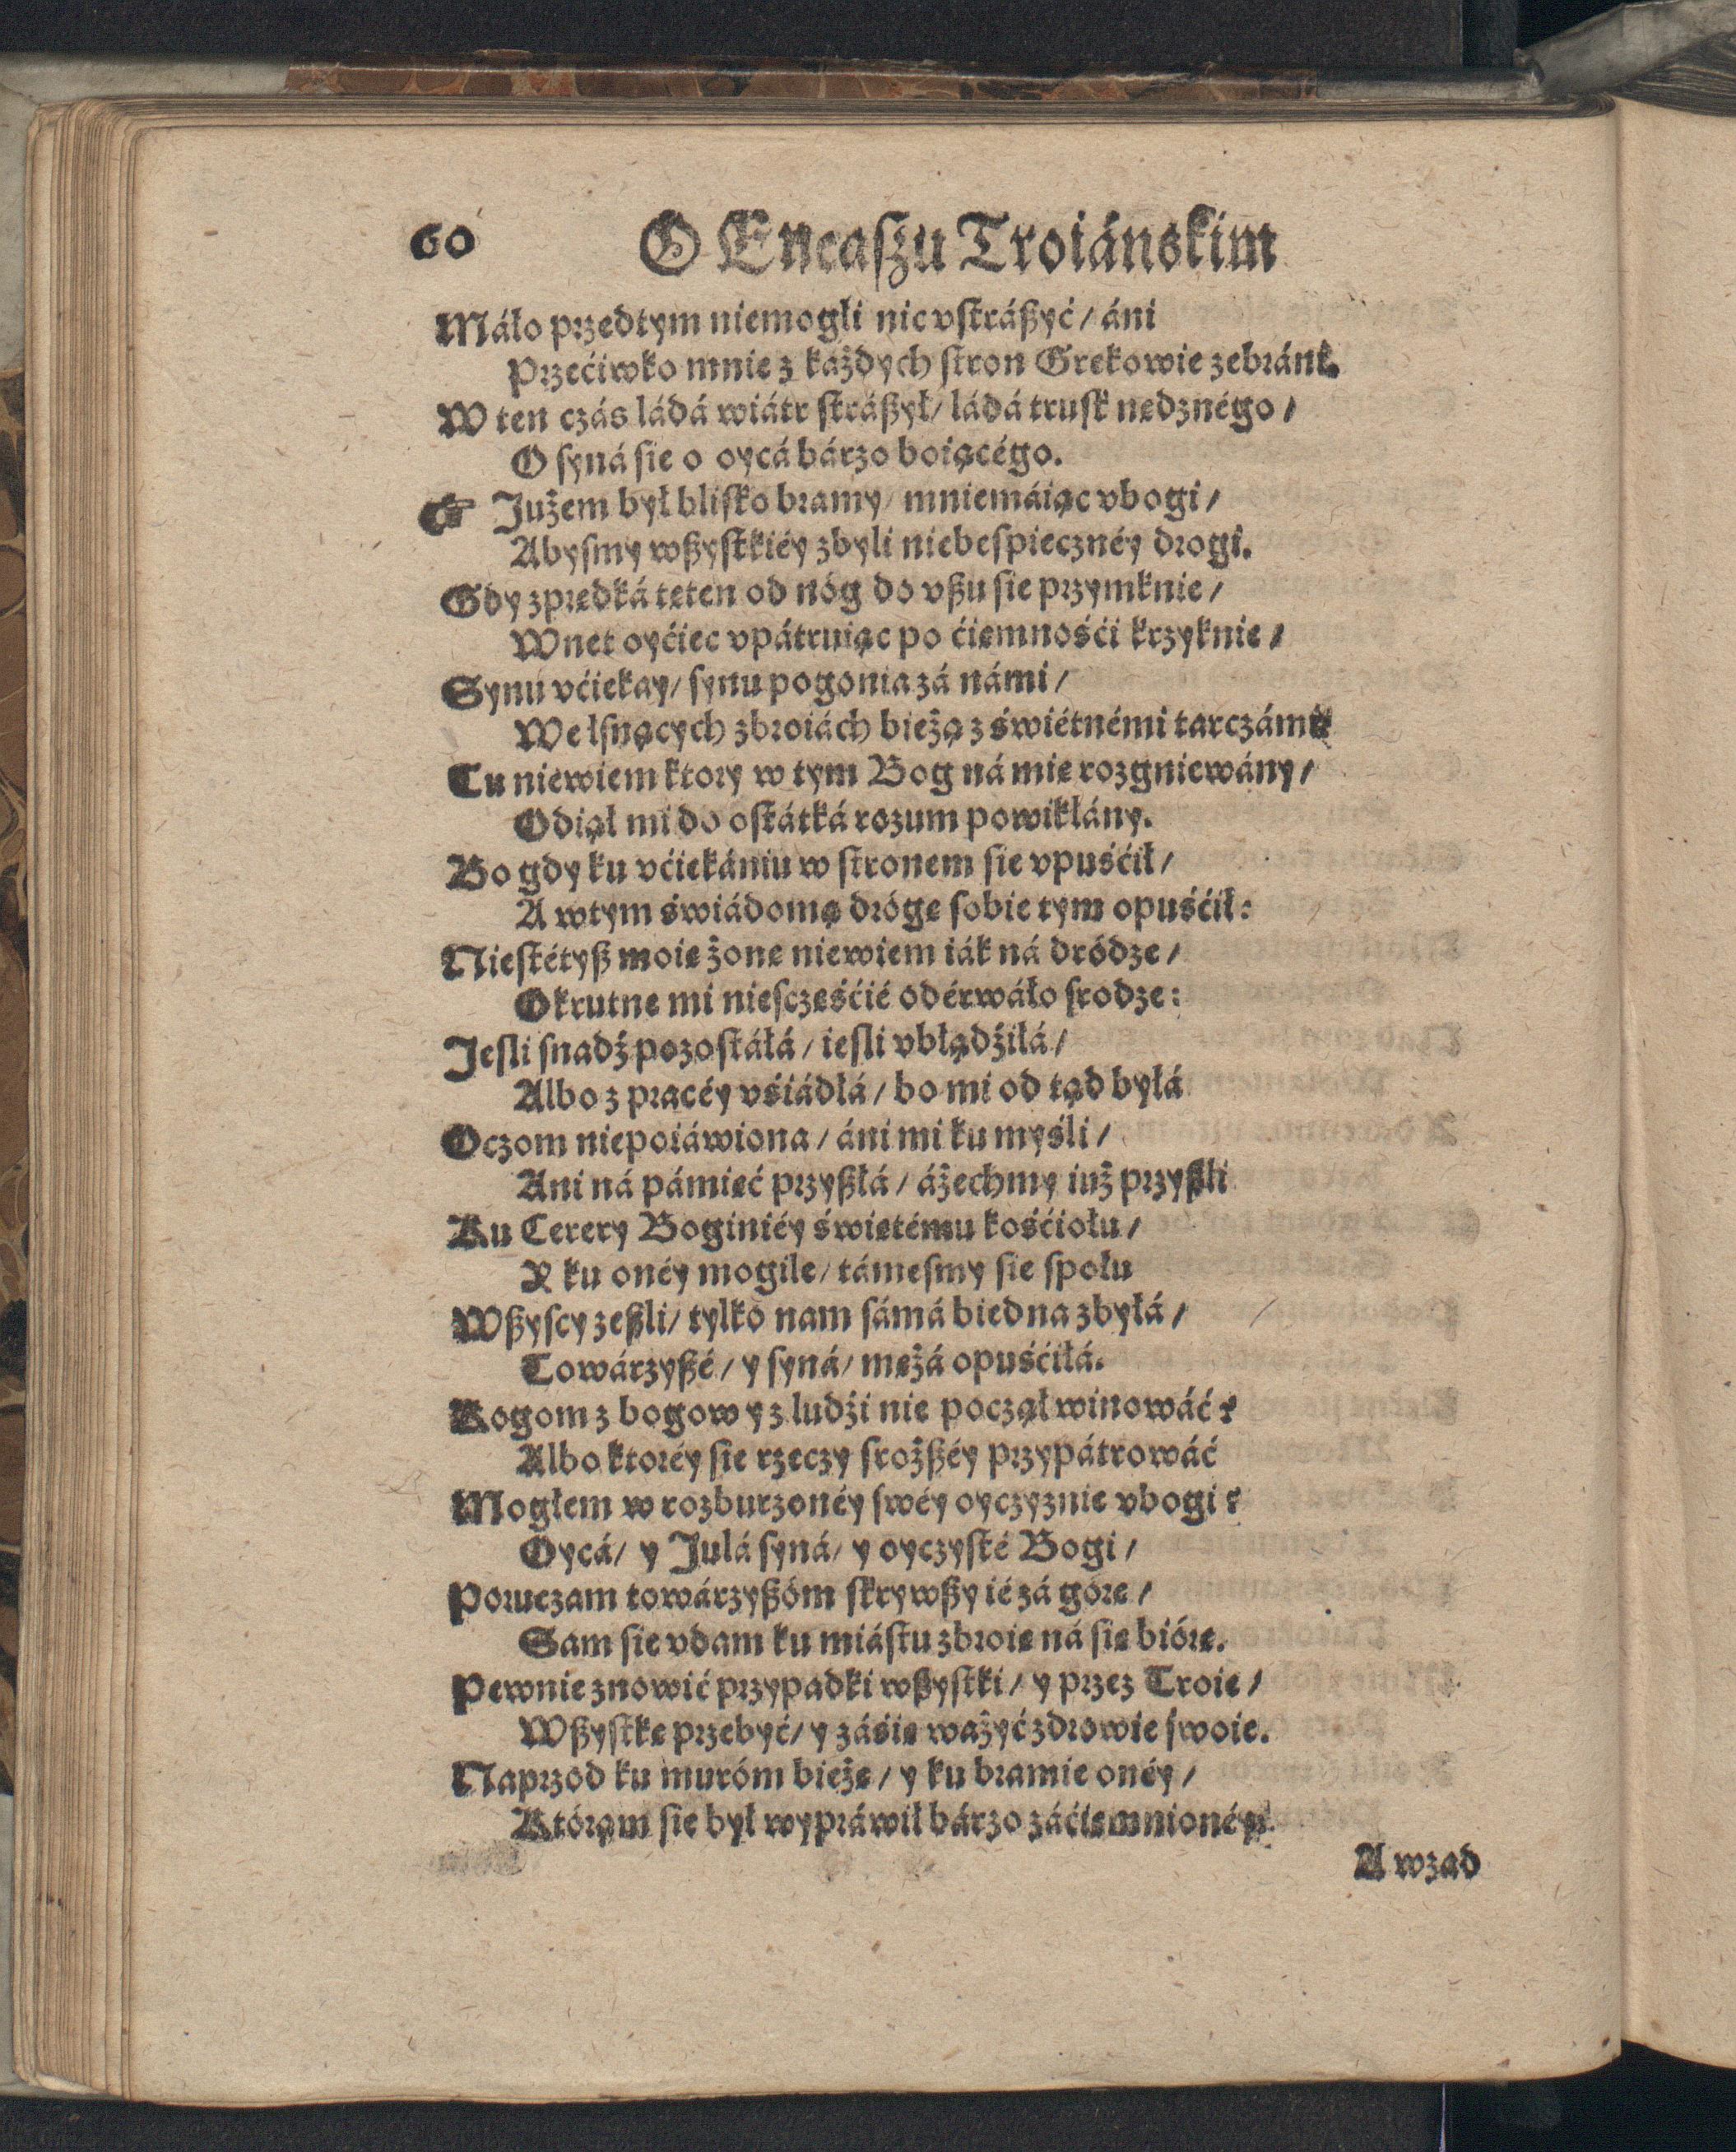 60 O Eneaszu Troiánskim
Máło przedtym niemogłi nic vstrászyć / áni
Przećiwko mnie z każdych stron Grekowie zebráni.
W ten czás ládá wiátr strászył / ládá trusk nędznégo /
O syná sie o oycá bárzo boiącégo.
☞ Jużem był blisko bramy / mniemáiąc vbogi /
Abysmy wszystkiéy zbyli niebespiecznéy drogi.
Gdy zprędká tęten od nóg do vszu sie przymknie /
Wnet oyćiec vpátruiąc po ćiemnośći krzyknie /
Synu vćiekay / synu pogonia zá námi /
We lsnących zbroiách bieżą z świétnémi tarczámi
Tu niewiem ktory w tym Bog ná mie rozgniewány /
Odiął mi do ostátká rozum powikłány.
Bo gdy ku vćiekániu w stronem sie vpuśćił /
A wtym świádomą drógę sobie tym opuśćił:
Niestétysz moię żonę niewiem iák ná dródze /
Okrutne mi niesczęśćié odérwáło srodze:
Jesli snadź pozostáłá / iesli vbłądźiłá /
Albo z pracéy vśiádłá / bo mi od tąd byłá
Oczom niepoiáwiona / áni mi ku myśli /
Ani ná pámięć przyszłá / áżechmy iuż przyszli
Ku Cerery Boginiéy świętému kośćiołu /
Y ku onéy mogile / támesmy sie społu
Wszyscy zeszli / tylko nam sámá biedna zbyłá /
Towárzyszé / y syná / mężá opuśćiłá.
Kogom z bogow y z ludźi nie począł winowáć?
Albo ktoréy sie rzeczy sroższéy przypátrowáć
Mogłem w rozburzonéy swéy oyczyznie vbogi?
Oycá / y Julá syná / y oyczysté Bogi /
Poruczam towárzyszóm skrywszy ié zá górę /
Sam sie vdam ku miástu zbroię ná się biórę.
Pewnie znowić przypadki wszystki / y przez Troię /
Wszystkę przebyć / y záśię ważyć zdrowie swoie.
Naprzod ku muróm bieżę / y ku bramie onéy /
Któram sie był wypráwił bárzo záćiemnionéy.
A wzad